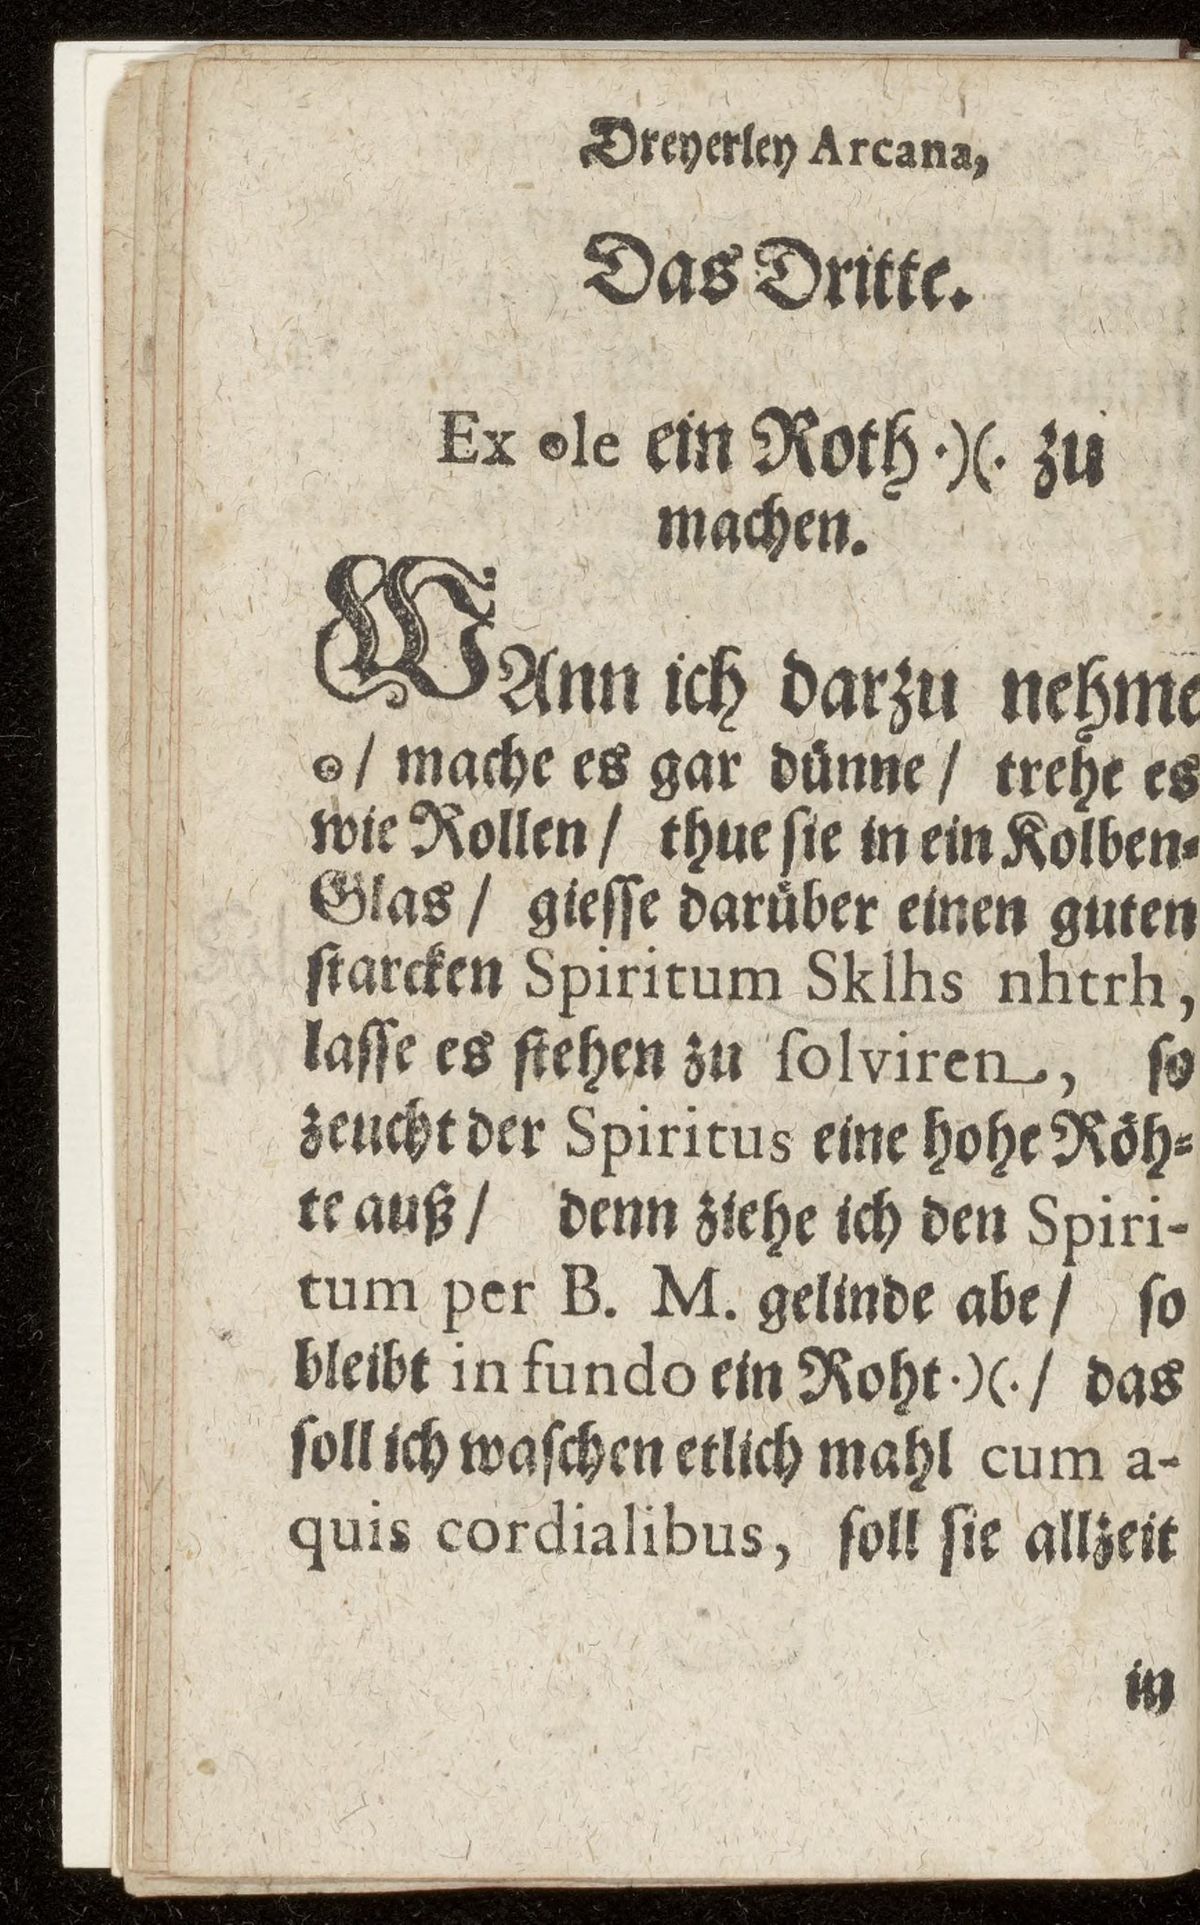 Dreyerley Arcana,
Das Dritte.
Ex ☉le ein Roth ·)(· zu
machen.
WAnn ich darzu nehme
☉/ mache es gar dünne/ trehe es
wie Rollen/ thue sie in ein Kolben-
Glas/ giesse darüber einen guten
starcken Spiritum Sklhs nhtrh,
lasse es stehen zu solviren, so
zeucht der Spiritus eine hohe Röh-
te auß/ denn ziehe ich den Spiri-
tum per B. M. gelinde abe/ so
bleibt in fundo ein Roht ·)(·/ das
soll ich waschen etlich mahl cum a-
quis cordialibus, soll sie allzeit
in